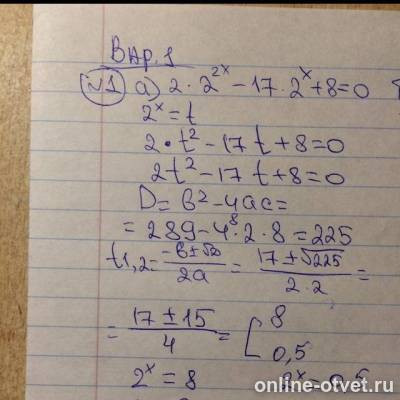 Вар. 1
№1 а) 2 · 2^{2x} − 17 · 2^x + 8 = 0
2^x = t
2 · t² − 17 t + 8 = 0
2t² − 17 t + 8 = 0
D = b² − 4ac =
= 289 − 4 · 2 · 8 = 225
t1,2 = (−b ± √D)/2a = (17 ± √225)/(2 · 2) =
= (17 ± 15)/4 = [ 8
0,5
2^x = 8 2^x = 0,5
online-otvet.ru